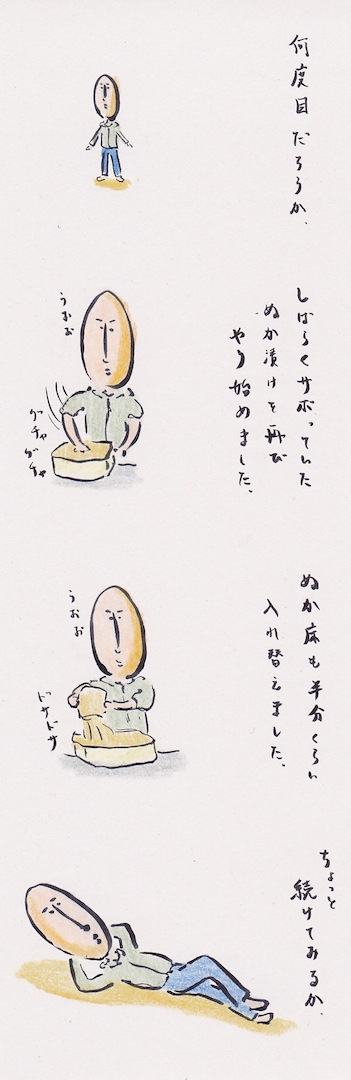 何度目だろうか、
しばらくサボっていた
ぬか漬けを再び
やり始めました、
うおお
グチャグチャ
ぬか床も半分くらい
入れ替えました、
うおお
ドサドサ
ちょっと
続けてみるか、